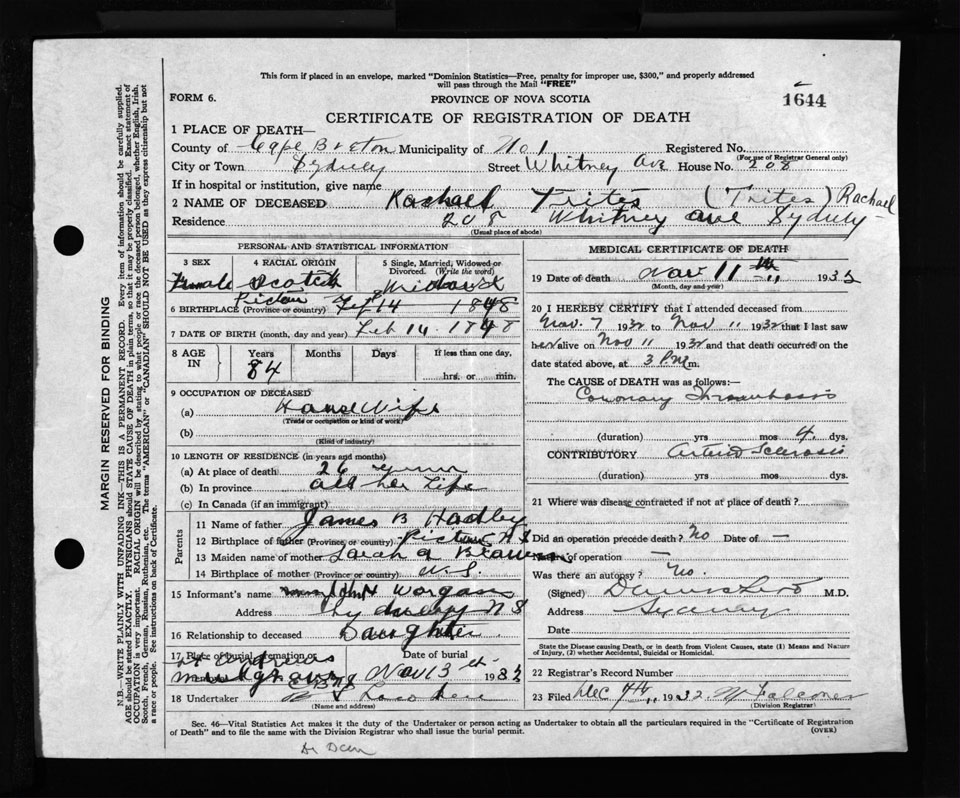 This form if placed in an envelope, marked "Dominion Statistics—Free, penalty for improper use, $300," and properly addressed
will pass through the Mail "FREE"
FORM 6.
PROVINCE OF NOVA SCOTIA
1644
CERTIFICATE OF REGISTRATION OF DEATH
1 PLACE OF DEATH—
County of Cape Breton Municipality of No 1 Registered No.
(For use of Registrar General only)
City or Town Street Whitney Ave House No. 208
If in hospital or institution, give name
2 NAME OF DECEASED Rachael Trites (Trites) Rachael
Residence 208 Whitney ave
(Usual place of abode)
PERSONAL AND STATISTICAL INFORMATION
3 SEX
4 RACIAL ORIGIN
5 Single, Married, Widowed or Divorced. (Write the word)
Female Scotch Widowed
6 BIRTHPLACE (Province or country) Feb 14 1848
7 DATE OF BIRTH (month, day and year) Feb 14 - 1848
8 AGE IN
Years Months Days If less than one day,
84 hrs. or min.
9 OCCUPATION OF DECEASED
(a) House Wife
(Trade or occupation or kind of work)
(b)
(Kind of industry)
10 LENGTH OF RESIDENCE (in years and months)
(a) At place of death 26 years
(b) In province all her Life
(c) In Canada (if an immigrant)
Parents
11 Name of father James B Hadley
12 Birthplace of father (Province or country) Pictou N S
13 Maiden name of mother Sarah a
14 Birthplace of mother (Province or country) N. S.
15 Informant's name John Worgan
Address N S
16 Relationship to deceased Daughter
17 Place of burial, cremation or
St Andrews
Date of burial
Nov 13 1932
18 Undertaker
(Name and address)
MEDICAL CERTIFICATE OF DEATH
19 Date of death Nov 11th 1932
(Month, day and year)
20 I HEREBY CERTIFY that I attended deceased from
Nov. 7 1932 to Nov 11 1932 that I last saw
her alive on Nov 11 1932 and that death occurred on the
date stated above, at 3 P.m.
The CAUSE of DEATH was as follows:—
Coronary Thrombosis
(duration) yrs mos 4 dys.
CONTRIBUTORY Arterio Sclerosis
(duration) yrs mos dys.
21 Where was disease contracted if not at place of death?
Did an operation precede death? No Date of —
Nature of operation —
Was there an autopsy? No.
(Signed) M.D.
Address Sydney
Date
State the Disease causing Death, or in death from Violent Causes, state (1) Means and Nature
of Injury, (2) whether Accidental, Suicidal or Homicidal.
22 Registrar's Record Number
23 Filed Dec 7th 1932
(Division Registrar)
Sec. 46—Vital Statistics Act makes it the duty of the Undertaker or person acting as Undertaker to obtain all the particulars required in the "Certificate of Registration
of Death" and to file the same with the Division Registrar who shall issue the burial permit.
(OVER)
MARGIN RESERVED FOR BINDING
N.B.—WRITE PLAINLY WITH UNFADING INK—THIS IS A PERMANENT RECORD. Every item of information should be carefully supplied.
AGE should be stated EXACTLY. PHYSICIANS should STATE CAUSE OF DEATH in plain terms, so that it may be properly classified. Exact statement of
OCCUPATION is very important. RACIAL ORIGIN will be described by stating to what people or race the deceased person belonged, whether English, Irish,
Scotch, French, German, Russian, Ruthenian, etc. The terms "AMERICAN" or "CANADIAN" SHOULD NOT BE USED as they express citizenship but not
a race or people. See instructions on back of Certificate.